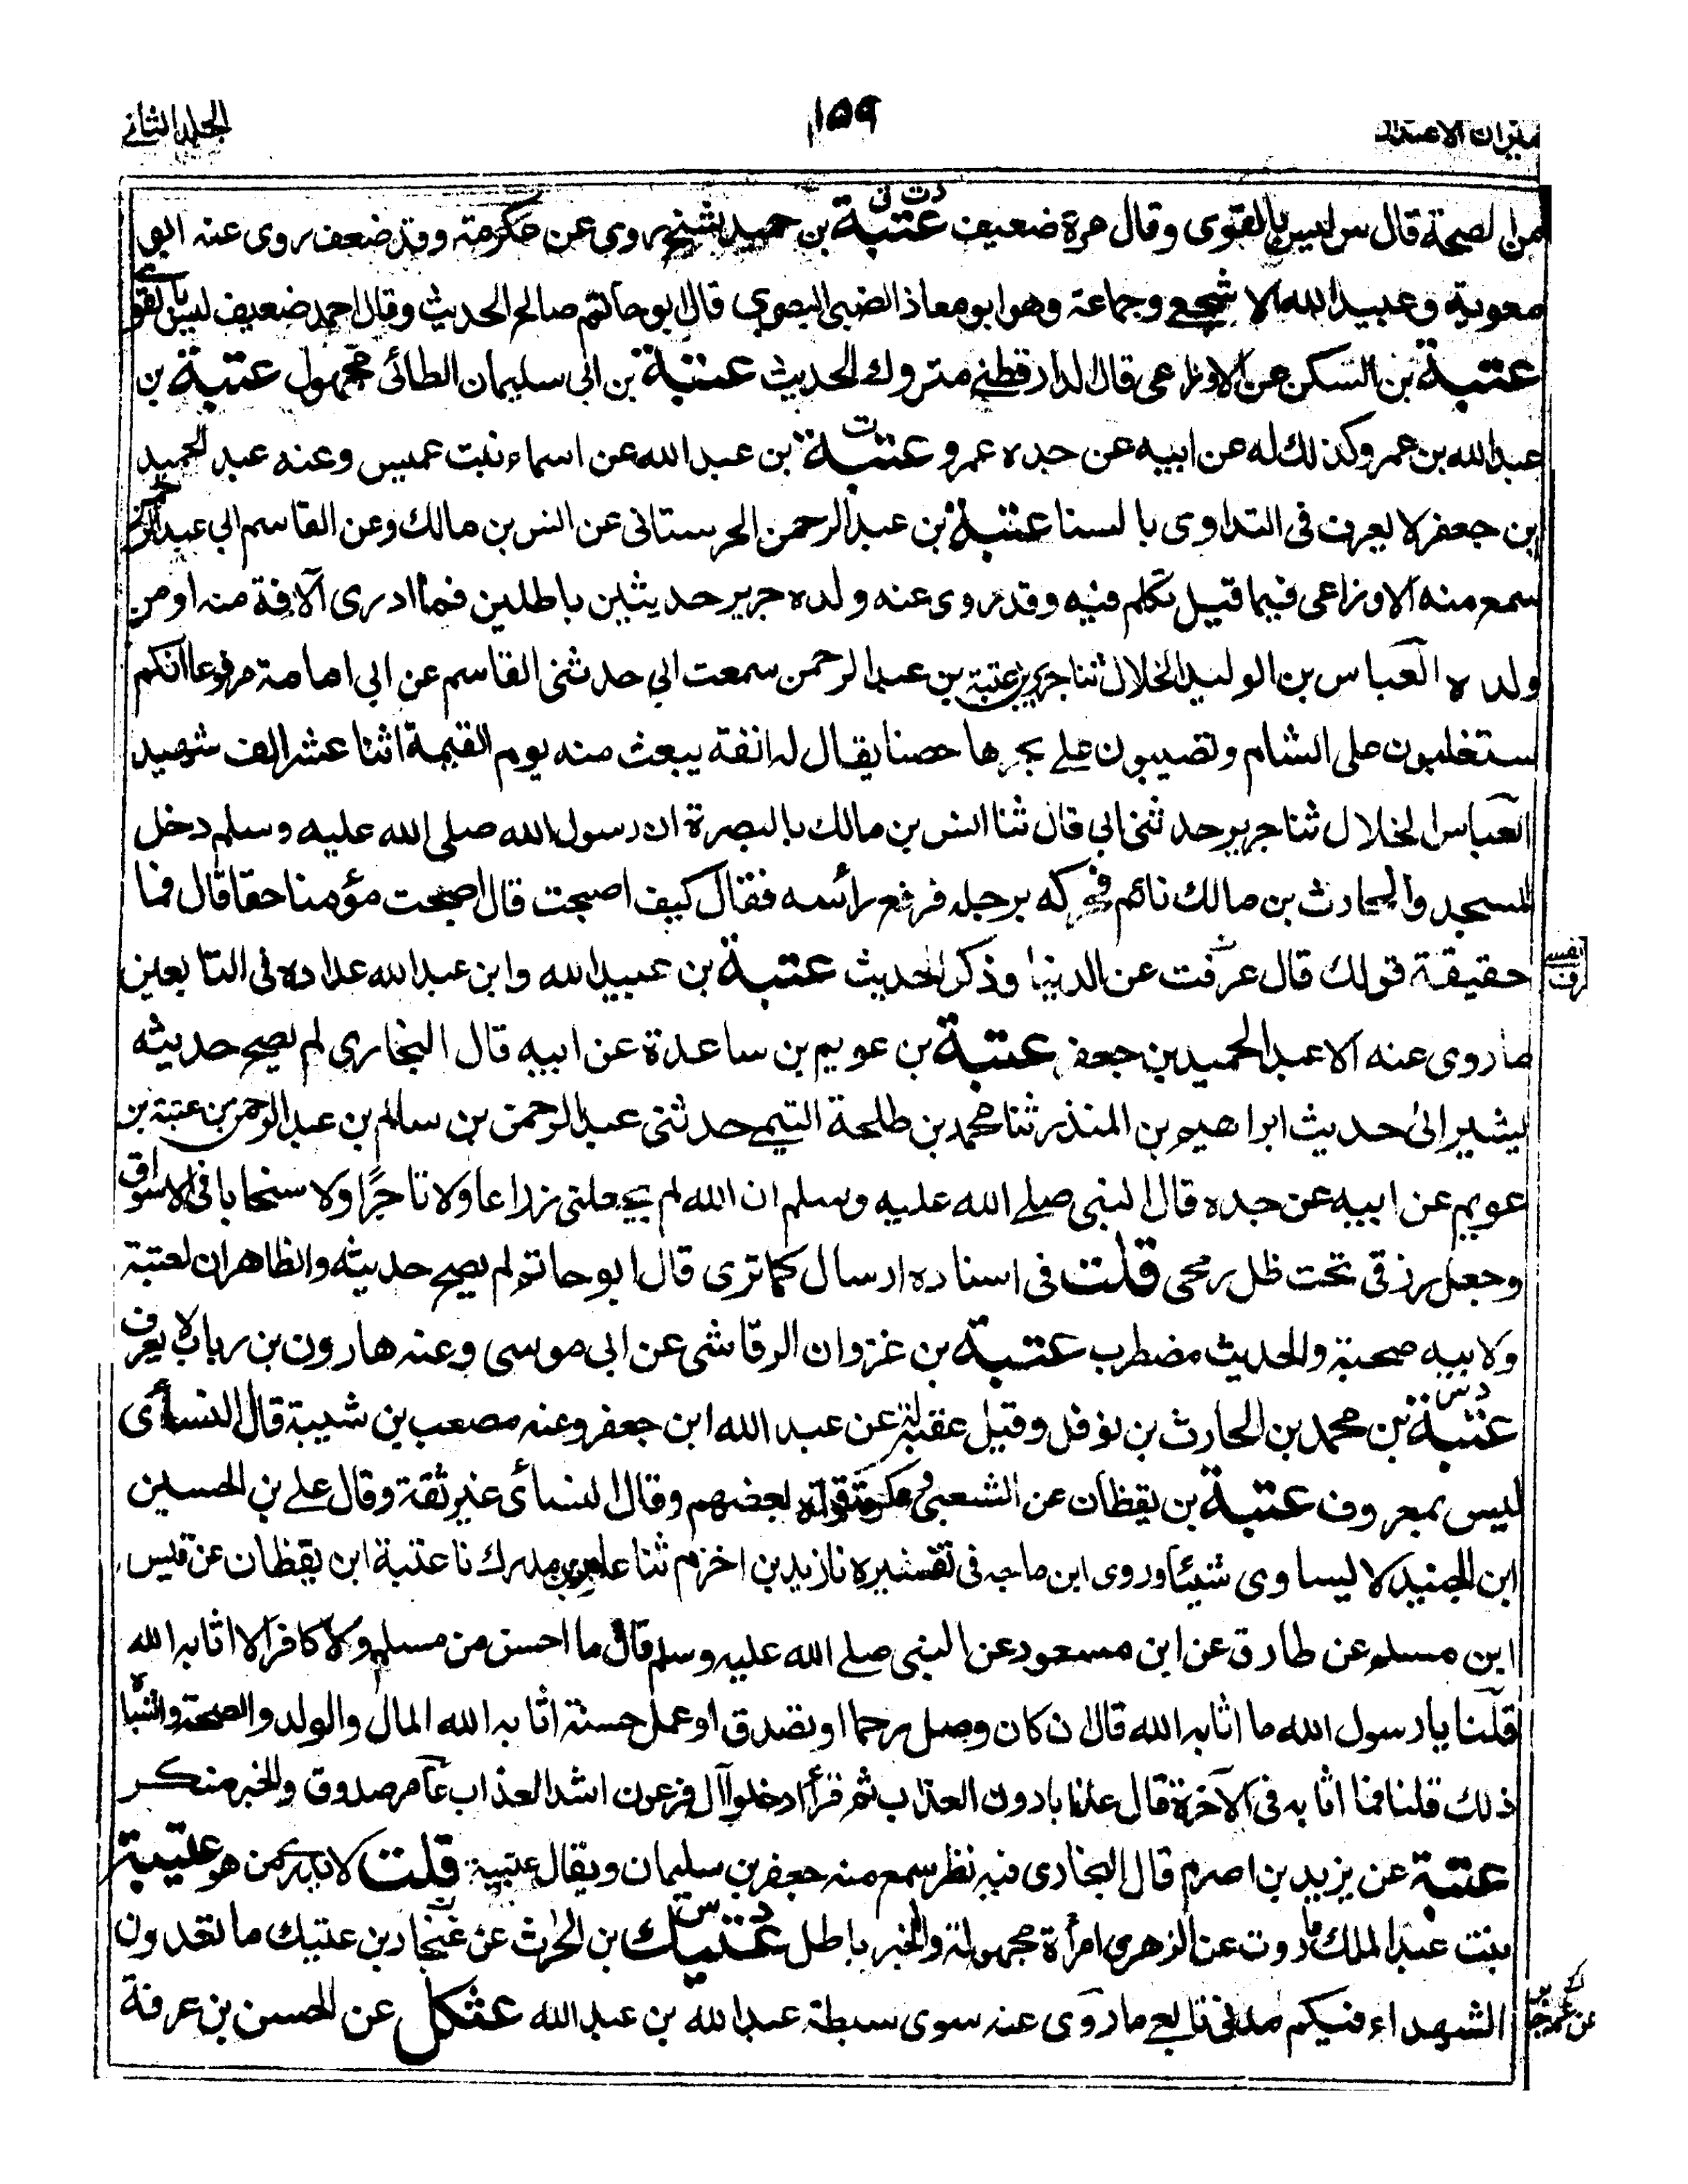 ميزان الاعتدال
١٥٩
الجلد الثانے
من الصحة قال س ليس بالقوى وقال مرة ضعيف عتبة بن حميد شيخ روى عن عكرمة وقد ضعف روى عنه ابو
دت ق
معوية وعبيد الله الاشجعي وجماعة وهو ابو معاذ الضبى البصري قال ابو حاتم صالح الحديث وقال احمد ضعيف ليس بالقوى
عتبة بن السكن عن الاوزاعى قال الدارقطنے متروك الحديث عتبة بن ابي سليمان الطائى مجهول عتبة بن
عبد الله بن عمرو كذلك له عن ابيه عن جده عمرو عتبة بن عبد الله عن اسماء بنت عميس وعنه عبد الحميد
ت
ابن جعفر لا يعرف فى التداوى بالسنا عتبة بن عبد الرحمن الحرستانى عن انس بن مالك وعن القاسم ابي عبد الرحمن
سمع منه الاوزاعى فيما قيل تكلم فيه وقد روى عنه ولده جرير حديثين باطلين فما ادرى الآفة منه او من
ولده العباس بن الوليد الخلال ثنا جرير بن عتبة بن عبد الرحمن سمعت ابي حدثنى القاسم عن ابي امامة مرفوعا انكم
ستغلبون على الشام وتصيبون على بحرها حصنا يقال له انفة يبعث منه يوم القيمة اثنا عشر الف شهيد
العباس الخلال ثنا جرير حدثنى ابي قال ثنا انس بن مالك بالبصرة ان رسول الله صلى الله عليه وسلم دخل
المسجد والحارث بن مالك نائم فحركه برجله فرفع رأسه فقال كيف اصبحت قال اصبحت مؤمنا حقا قال فما
حقيقة قولك قال عرفت عن الدنيا وذكر الحديث عتبة بن عبيد الله وابن عبد الله عداده فى التابعين
ما روى عنه الا عبد الحميد بن جعفر عتبة بن عويم بن ساعدة عن ابيه قال البخارى لم يصح حديثه
يشير الى حديث ابراهيم بن المنذر ثنا محمد بن طلحة التيمے حدثنى عبد الرحمن بن سالم بن عبد الرحمن بن عتبة بن
عويم عن ابيه عن جده قال النبى صلے الله عليه وسلم ان الله لم يجعلنى زراعا ولا تاجرًا ولا سخابا فى الاسواق
وجعل رزقى تحت ظل رمحى قلت فى اسناده ارسال كما ترى قال ابو حاتم لم يصح حديثه والظاهر ان لعتبة
ولابيه صحبة والحديث مضطرب عتبة بن غزوان الرقاشى عن ابى موسى وعنه هارون بن رباب لا يعرف
دس
عتبة بن محمد بن الحارث بن نوفل وقيل عقبة عن عبد الله ابن جعفر وعنه مصعب بن شيبة قال النسأى
ليس بمعروف عتبة بن يقظان عن الشعبى وعكرمة قواه بعضهم وقال النسأى غير ثقة وقال علے بن الحسين
ابن الجنيد لا يساوى شيئا وروى ابن ماجه فى تفسيره نا زيد بن اخزم ثنا عامر بن مدرك نا عتبة ابن يقظان عن قيس
ابن مسلم عن طارق عن ابن مسعود عن النبى صلے الله عليه وسلم قال ما احسن من مسلم ولا كافر الا اثابه الله
قلنا يا رسول الله ما اثابه الله قال ان كان وصل رحما او تصدق او عمل حسنة اثابه الله المال والولد والصحة واشباه
ذلك قلنا فما اثابه فى الآخرة قال عذابا دون العذاب ثم قرأ ادخلوا آل فرعون اشد العذاب عامر صدوق والخبر منكر
عتبة عن يزيد بن اصرم قال البخارى فيه نظر سمع منه جعفر بن سليمان ويقال عتيبة قلت لا يدرى من هو عتيبة
بنت عبد الملك ما روت عن الزهرى امرأة مجهولة والخبر باطل عتيك بن الحرث عن عمه جابر بن عتيك ما تعدون
دس
الشهداء فيكم مدنى تابعے ما روى عنه سوى سبطه عبد الله بن عبد الله عثكل عن الحسن بن عرفة